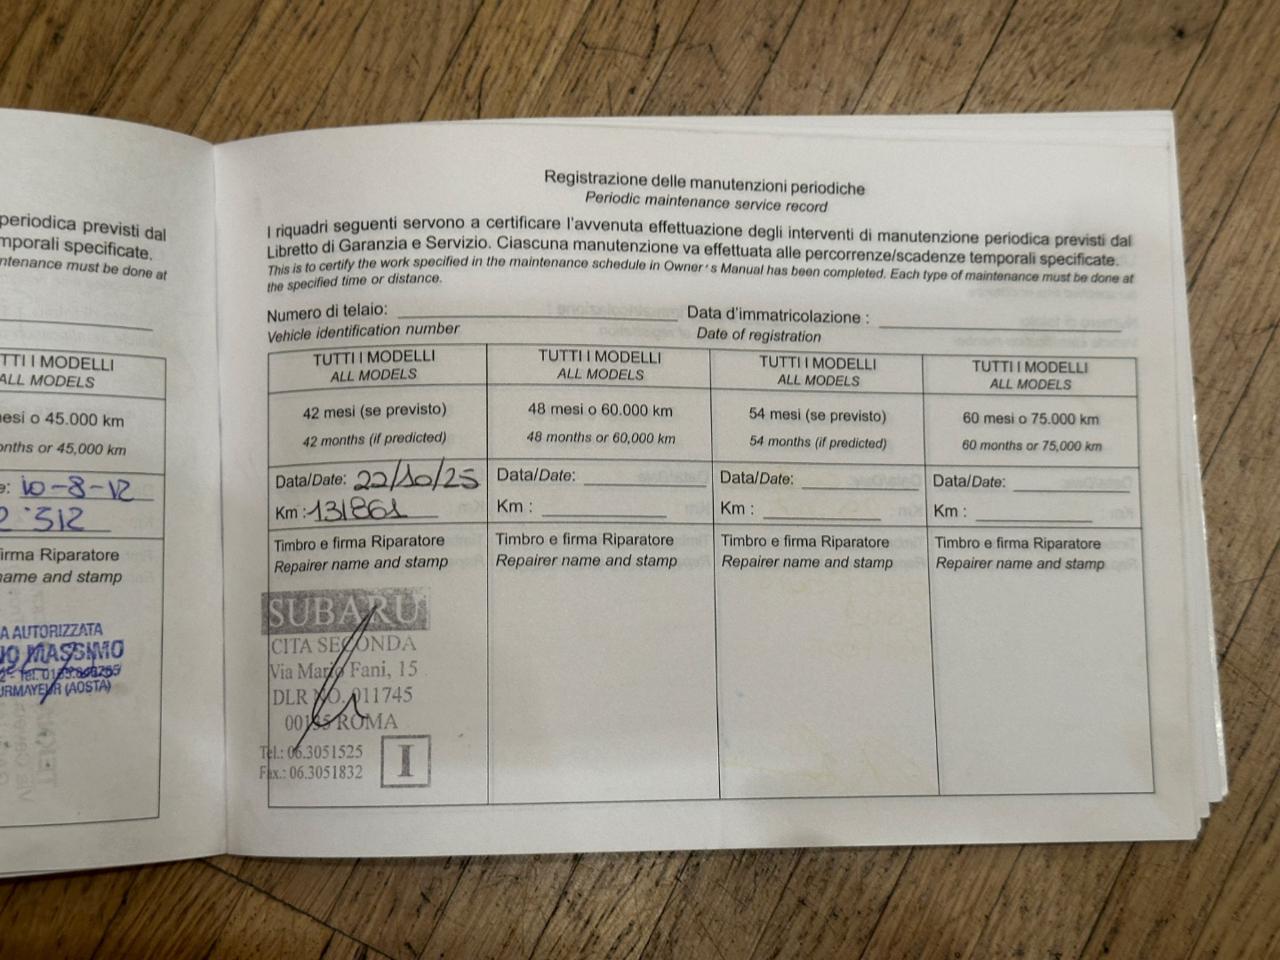 periodica previsti dal
mporali specificate.
ntenance must be done at
TTI I MODELLI
ALL MODELS
esi o 45.000 km
onths or 45,000 km
e: 10-8-12
2.512
irma Riparatore
name and stamp
A AUTORIZZATA
MASSIMO
RMAYEUR (AOSTA)
Registrazione delle manutenzioni periodiche
Periodic maintenance service record
I riquadri seguenti servono a certificare l'avvenuta effettuazione degli interventi di manutenzione periodica previsti dal
Libretto di Garanzia e Servizio. Ciascuna manutenzione va effettuata alle percorrenze/scadenze temporali specificate.
This is to certify the work specified in the maintenance schedule in Owner's Manual has been completed. Each type of maintenance must be done at
the specified time or distance.
Numero di telaio: Data d'immatricolazione :
Vehicle identification number Date of registration
TUTTI I MODELLI TUTTI I MODELLI TUTTI I MODELLI TUTTI I MODELLI
ALL MODELS ALL MODELS ALL MODELS ALL MODELS
42 mesi (se previsto) 48 mesi o 60.000 km 54 mesi (se previsto) 60 mesi o 75.000 km
42 months (if predicted) 48 months or 60,000 km 54 months (if predicted) 60 months or 75,000 km
Data/Date: 22/10/25 Data/Date: Data/Date: Data/Date:
Km : 131861 Km : Km : Km :
Timbro e firma Riparatore Timbro e firma Riparatore Timbro e firma Riparatore Timbro e firma Riparatore
Repairer name and stamp Repairer name and stamp Repairer name and stamp Repairer name and stamp
SUBARU
CITA SECONDA
Via Mario Fani, 15
DLR NO. 011745
00135 ROMA
Tel.: 06.3051525
Fax.: 06.3051832
I